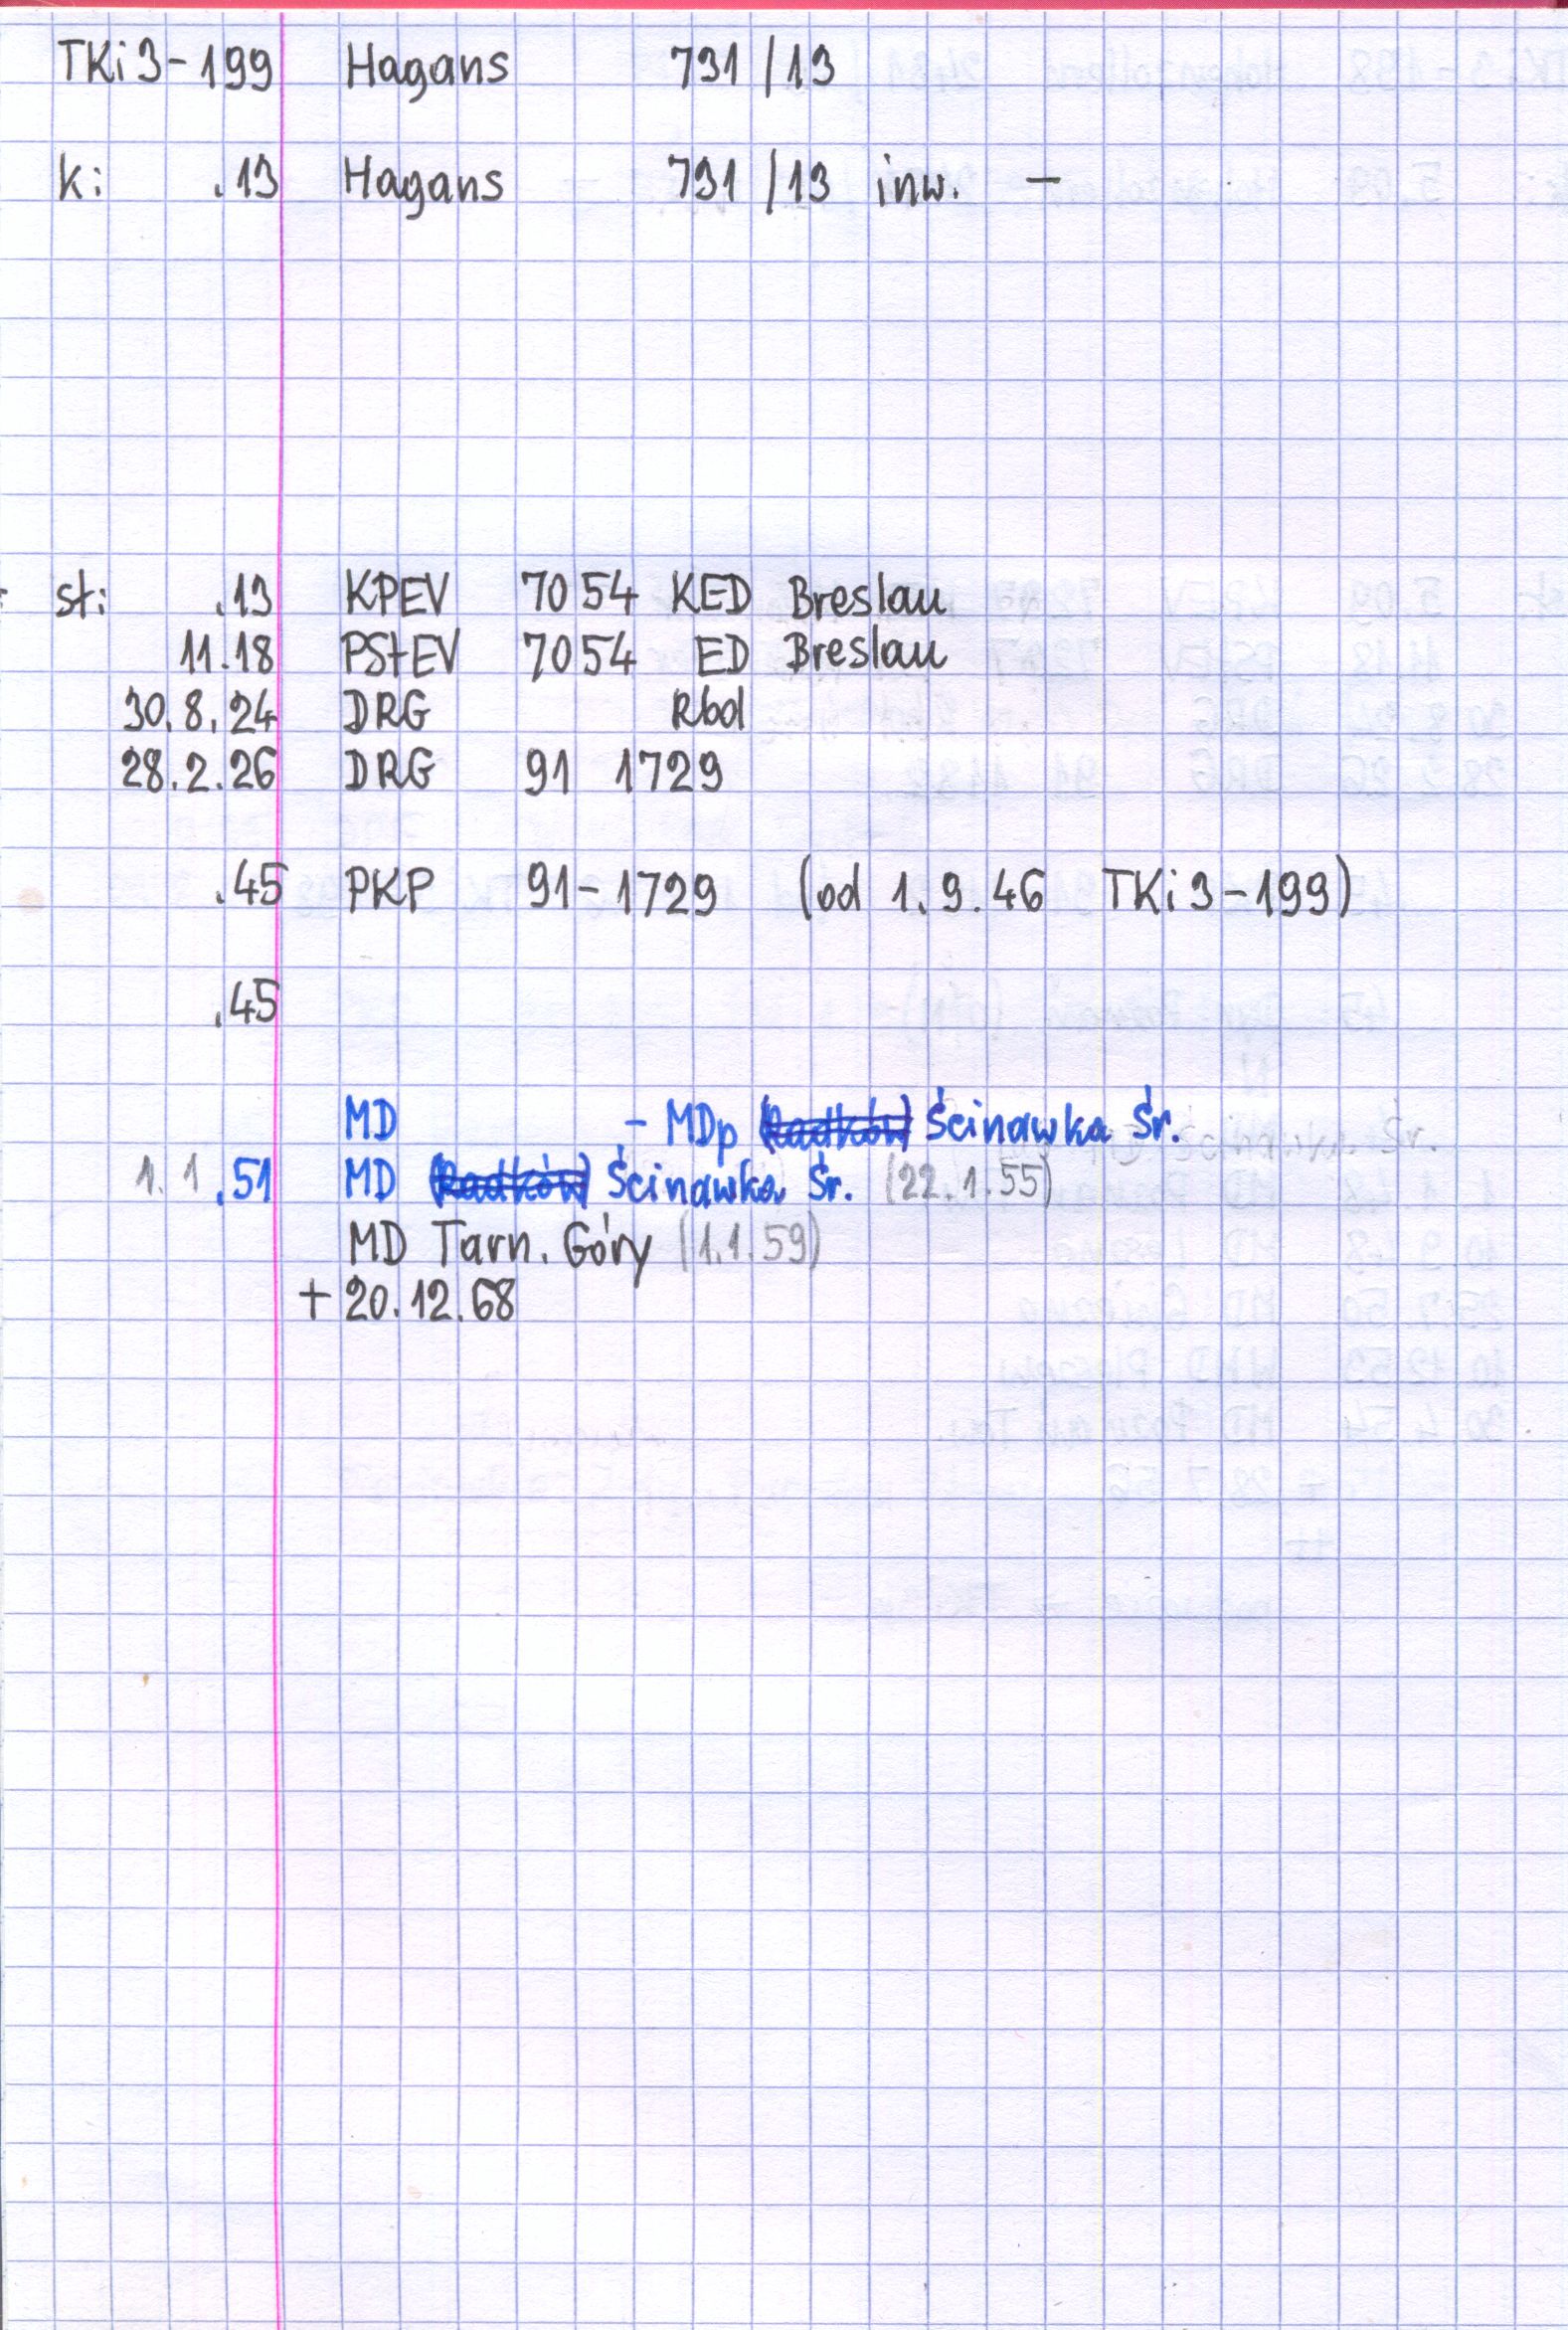 TKi3-199 Hagans 731/13
k: .13 Hagans 731/13 inw. -
st: .13 KPEV 7054 KED Breslau
11.18 PStEV 7054 ED Breslau
30.8.24 DRG Rbd
28.2.26 DRG 91 1729
.45 PKP 91-1729 (od 1.9.46 TKi3-199)
.45
MD - MDp (Radków) Ścinawka Śr.
1.1.51 MD (Radków) Ścinawka Śr. (22.1.55)
MD Tarn. Góry (1.1.59)
+ 20.12.68